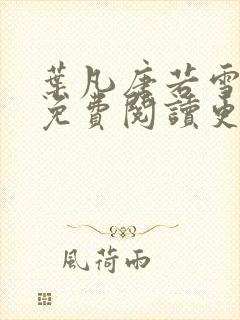 葉凡唐若雪
免費閱讀更
風荷雨